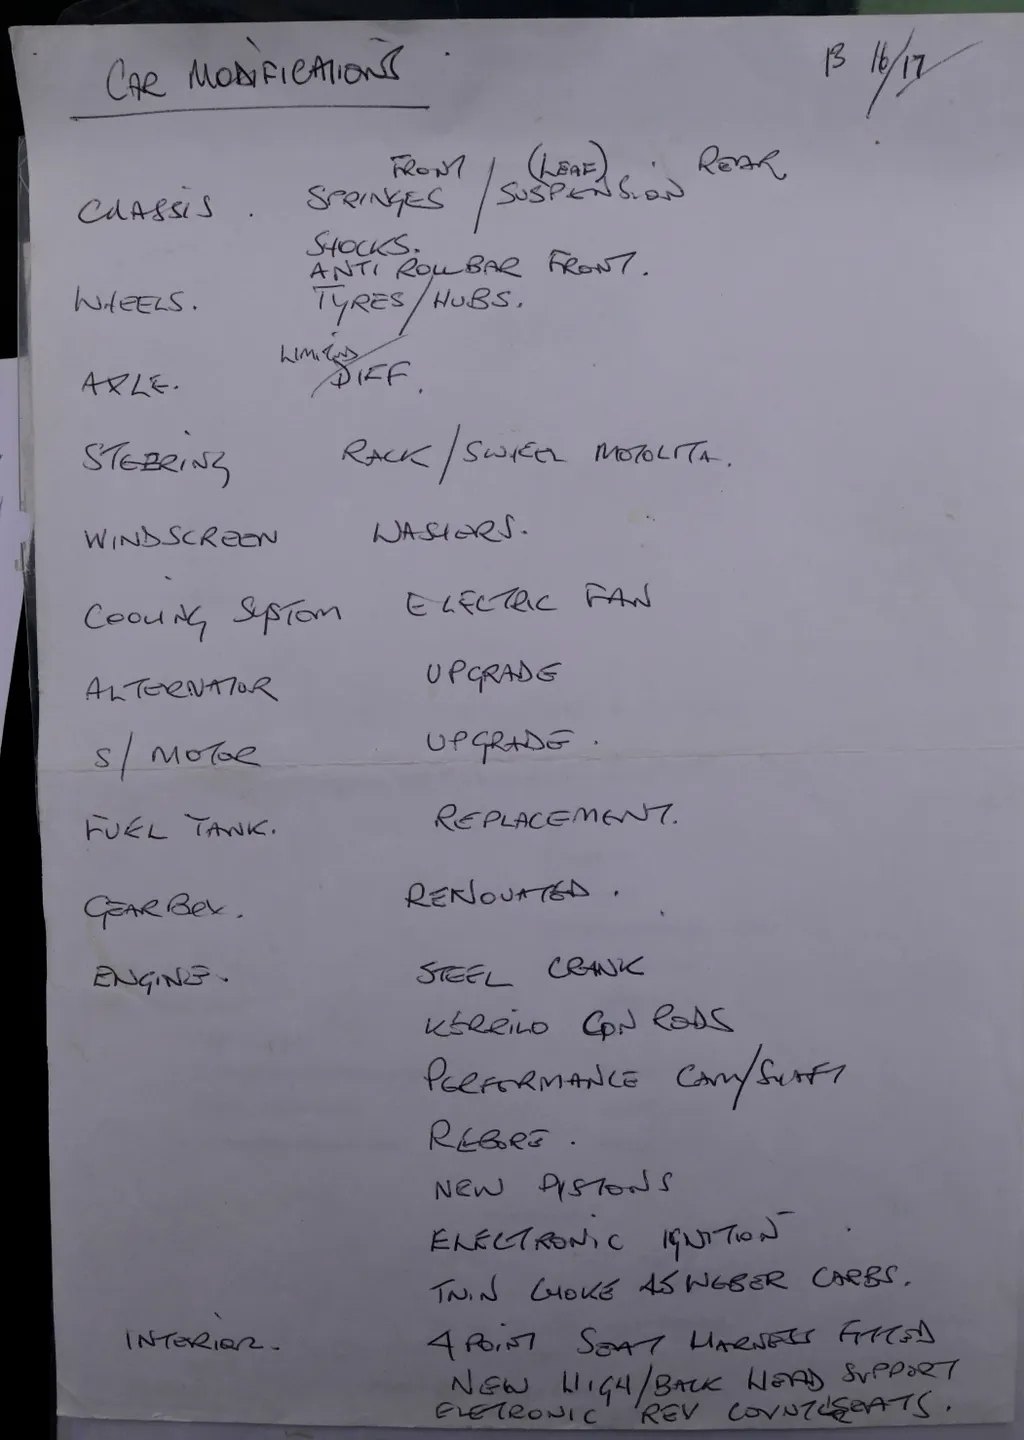 CAR MODIFICATIONS
B 16/17
FRONT / (LEAF) . REAR
CHASSIS . SPRINGES / SUSPENSION
SHOCKS.
ANTI ROLLBAR FRONT.
WHEELS. TYRES/HUBS.
LIMITED
AXLE. DIFF.
STEERING RACK/SWHEEL MOTOLITA.
WINDSCREEN WASHERS.
COOLING SYSTOM ELECTRIC FAN
ALTERNATOR UPGRADE
S/MOTOR UPGRADE.
FUEL TANK. REPLACEMENT.
GEARBOX. RENOVATED.
ENGINE. STEEL CRANK
CON RODS
PERFORMANCE CAM/SHAFT
REBORE.
NEW PISTONS
ELECTRONIC IGNITION
TWIN CHOKE 45 WEBER CARBS.
INTERIOR. 4 POINT SEAT HARNESS FITTED
NEW HIGH/BACK HEAD SUPPORT
ELETRONIC REV SEATS.